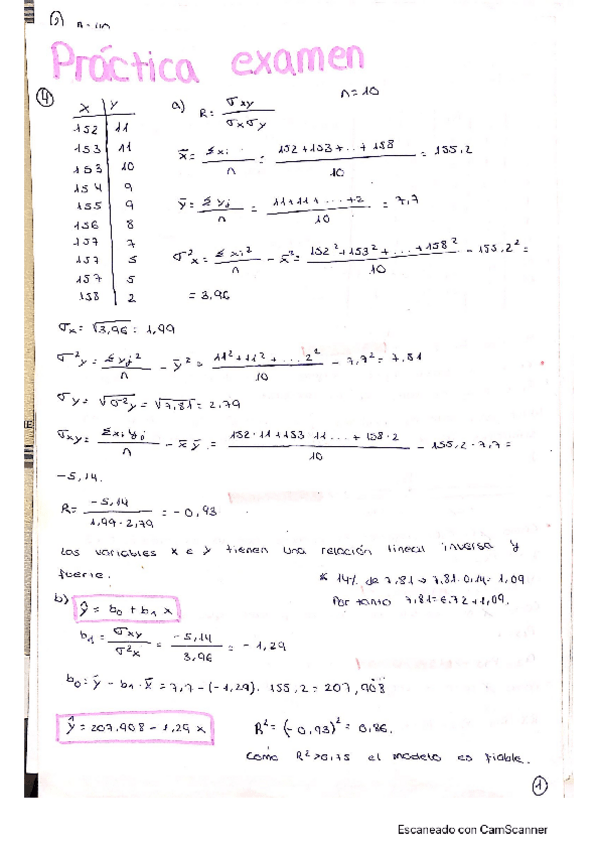 Práctica examen
④ n=10
x | y
152 | 11
153 | 11
153 | 10
154 | 9
155 | 9
156 | 8
157 | 7
157 | 5
157 | 5
158 | 2
a) R = σxy / σxσy
x̄ = Σxi / n = 152+153+...+158 / 10 = 155,2
ȳ = Σyj / n = 11+11+...+2 / 10 = 7,7
σ²x = Σxi² / n - x̄² = 152²+153²+...+158² / 10 - 155,2² =
= 3,96
σx = √3,96 = 1,99
σ²y = Σyj² / n - ȳ² = 11²+11²+...2² / 10 - 7,7² = 7,81
σy = √σ²y = √7,81 = 2,79
σxy = Σxiyj / n - x̄ȳ = 152·11+153·11...+158·2 / 10 - 155,2·7,7 =
-5,14.
R = -5,14 / 1,99·2,79 = -0,93
Las variables x e y tienen una relación lineal inversa y
fuerte. * 14% de 7,81 → 7,81·0,14 = 1,09
Por tanto 7,81 = 6,72 + 1,09.
b) ŷ = b₀ + b₁ x
b₁ = σxy / σ²x = -5,14 / 3,96 = -1,29
b₀ = ȳ - b₁·x̄ = 7,7 - (-1,29)·155,2 = 207,908
ŷ = 207,908 - 1,29 x R² = (-0,93)² = 0,86.
Como R² > 0,75 el modelo es fiable.
①
Escaneado con CamScanner